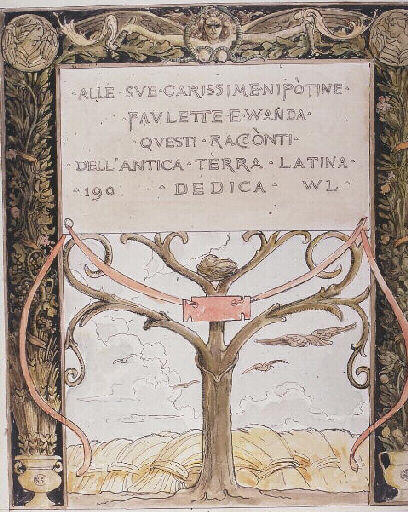 ·ALLE·SVE·CARISSIME·NIPÒTINE·
PAVLETTE·E·WANDA·
QVESTI·RACCÒNTI·
·DELL'ANTICA·TERRA·LATINA·
·190 ·DEDICA· WL